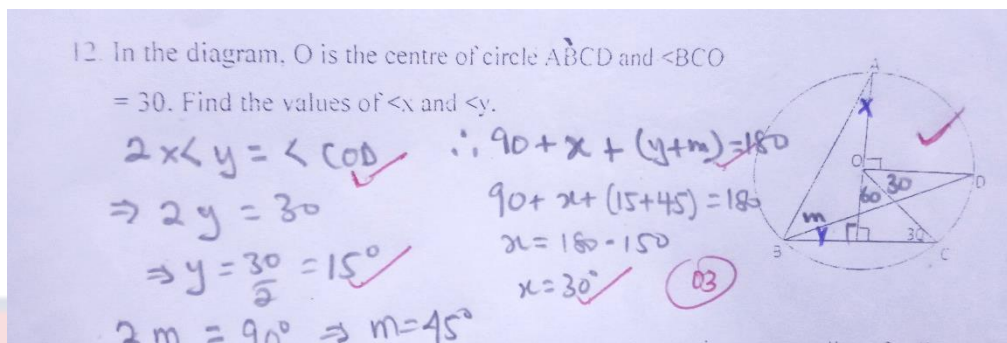 12. In the diagram, O is the centre of circle ABCD and <BCO
= 30. Find the values of <x and <y.
2 x < y = < COD
⇒ 2 y = 30
⇒ y = 30/2 = 15°
2 m = 90° ⇒ m = 45°
∴ 90 + x + (y+m) = 180
90 + x + (15+45) = 180
x = 180 - 150
x = 30°
03
A
x
O
30
D
60
m
y
30
B
C